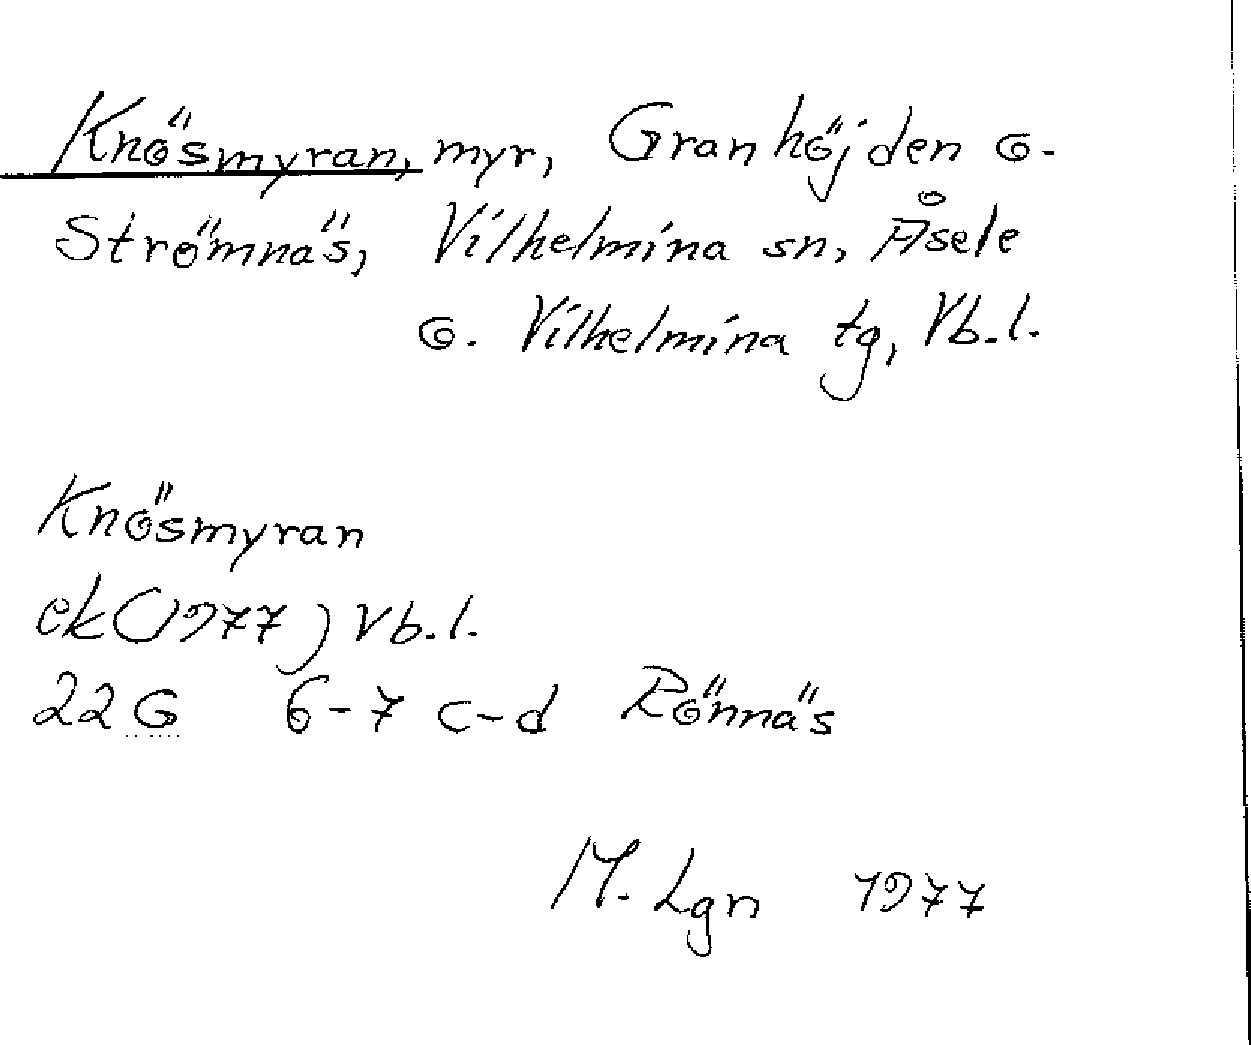 Knösmyran, myr, Granhöjden o.
Strömnäs, Vilhelmina sn, Åsele
o. Vilhelmina tg, Vb.l.
Knösmyran
ek(1977) Vb.l.
22 G 6-7 c-d Rönnäs
M. Lgn 1977